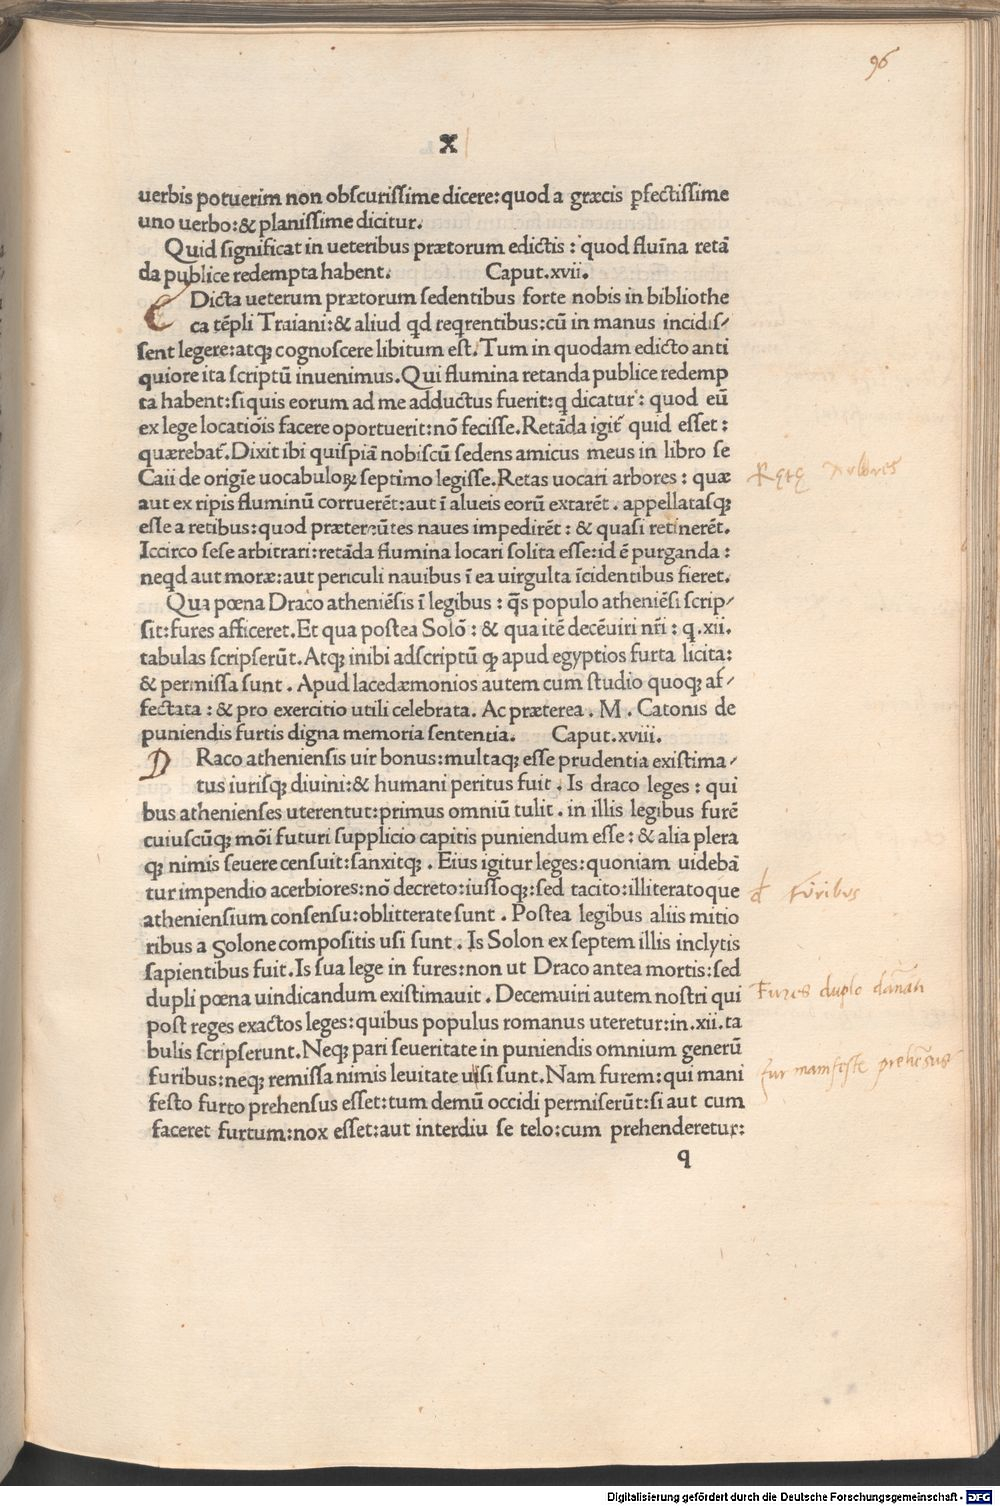 96
X
uerbis potuerim non obscurissime dicere:quod a græcis ꝑfectissime
uno uerbo:& planissime dicitur.
Quid significat in ueteribus prætorum edictis : quod fluĩna retã
da publice redempta habent. Caput.xvii.
E Dicta ueterum prætorum sedentibus forte nobis in bibliothe
ca tẽpli Traiani:& aliud qd reqrentibus:cũ in manus incidis⸗
sent legere:atqꝫ cognoscere libitum est.Tum in quodam edicto anti
quiore ita scriptũ inuenimus.Qui flumina retanda publice redemp
ta habent:siquis eorum ad me adductus fuerit:q dicatur : quod eũ
ex lege locatiõis facere oportuerit:nõ fecisse.Retãda igit̃ quid esset :
quærebat̃.Dixit ibi quispiã nobiscũ sedens amicus meus in libro se
Caii de origĩe uocabuloꝝ septimo legisse.Retas uocari arbores : quæ
aut ex ripis fluminũ corruerẽt:aut ĩ alueis eorũ extarẽt . appellatasqꝫ
esse a retibus:quod prætereũtes naues impedirẽt : & quasi retinerẽt.
Iccirco sese arbitrari:retãda flumina locari solita esse:id ẽ purganda :
neqd aut moræ:aut periculi nauibus ĩ ea uirgulta ĩcidentibus fieret.
Qua pœna Draco atheniẽsis ĩ legibus : q̃s populo atheniẽsi scrip⸗
sit:fures afficeret.Et qua postea Solõ : & qua itẽ decẽuiri nr̃i : q .xii.
tabulas scripserũt.Atqꝫ inibi adscriptũ ꝙ apud egyptios furta licita:
& permissa sunt . Apud lacedæmonios autem cum studio quoqꝫ af⸗
fectata : & pro exercitio utili celebrata. Ac præterea . M . Catonis de
puniendis furtis digna memoria sententia. Caput.xviii.
D Raco atheniensis uir bonus:multaqꝫ esse prudentia existima⸗
tus iurisqꝫ diuini:& humani peritus fuit . Is draco leges : qui
bus athenienses uterentut:primus omniũ tulit . in illis legibus furẽ
cuiuscũqꝫ mõi futuri supplicio capitis puniendum esse : & alia plera
qꝫ nimis seuere censuit:sanxitqꝫ . Eius igitur leges:quoniam uidebã
tur impendio acerbiores:nõ decreto:iussoqꝫ:sed tacito:illiteratoque
atheniensium consensu:oblitterate sunt . Postea legibus aliis mitio
ribus a Solone compositis usi sunt . Is Solon ex septem illis inclytis
sapientibus fuit.Is sua lege in fures:non ut Draco antea mortis:sed
dupli pœna uindicandum existimauit . Decemuiri autem nostri qui
post reges exactos leges:quibus populus romanus uteretur:in.xii.ta
bulis scripserunt.Neqꝫ pari seueritate in puniendis omnium generũ
furibus:neqꝫ remissa nimis leuitate uisi sunt.Nam furem:qui mani
festo furto prehensus esset:tum demũ occidi permiserũt:si aut cum
faceret furtum:nox esset:aut interdiu se telo:cum prehenderetur:
q
Rętę Arbores
d furibus
Fures duplo dãnati
fur manifeste prehẽsus
Digitalisierung gefördert durch die Deutsche Forschungsgemeinschaft - DFG